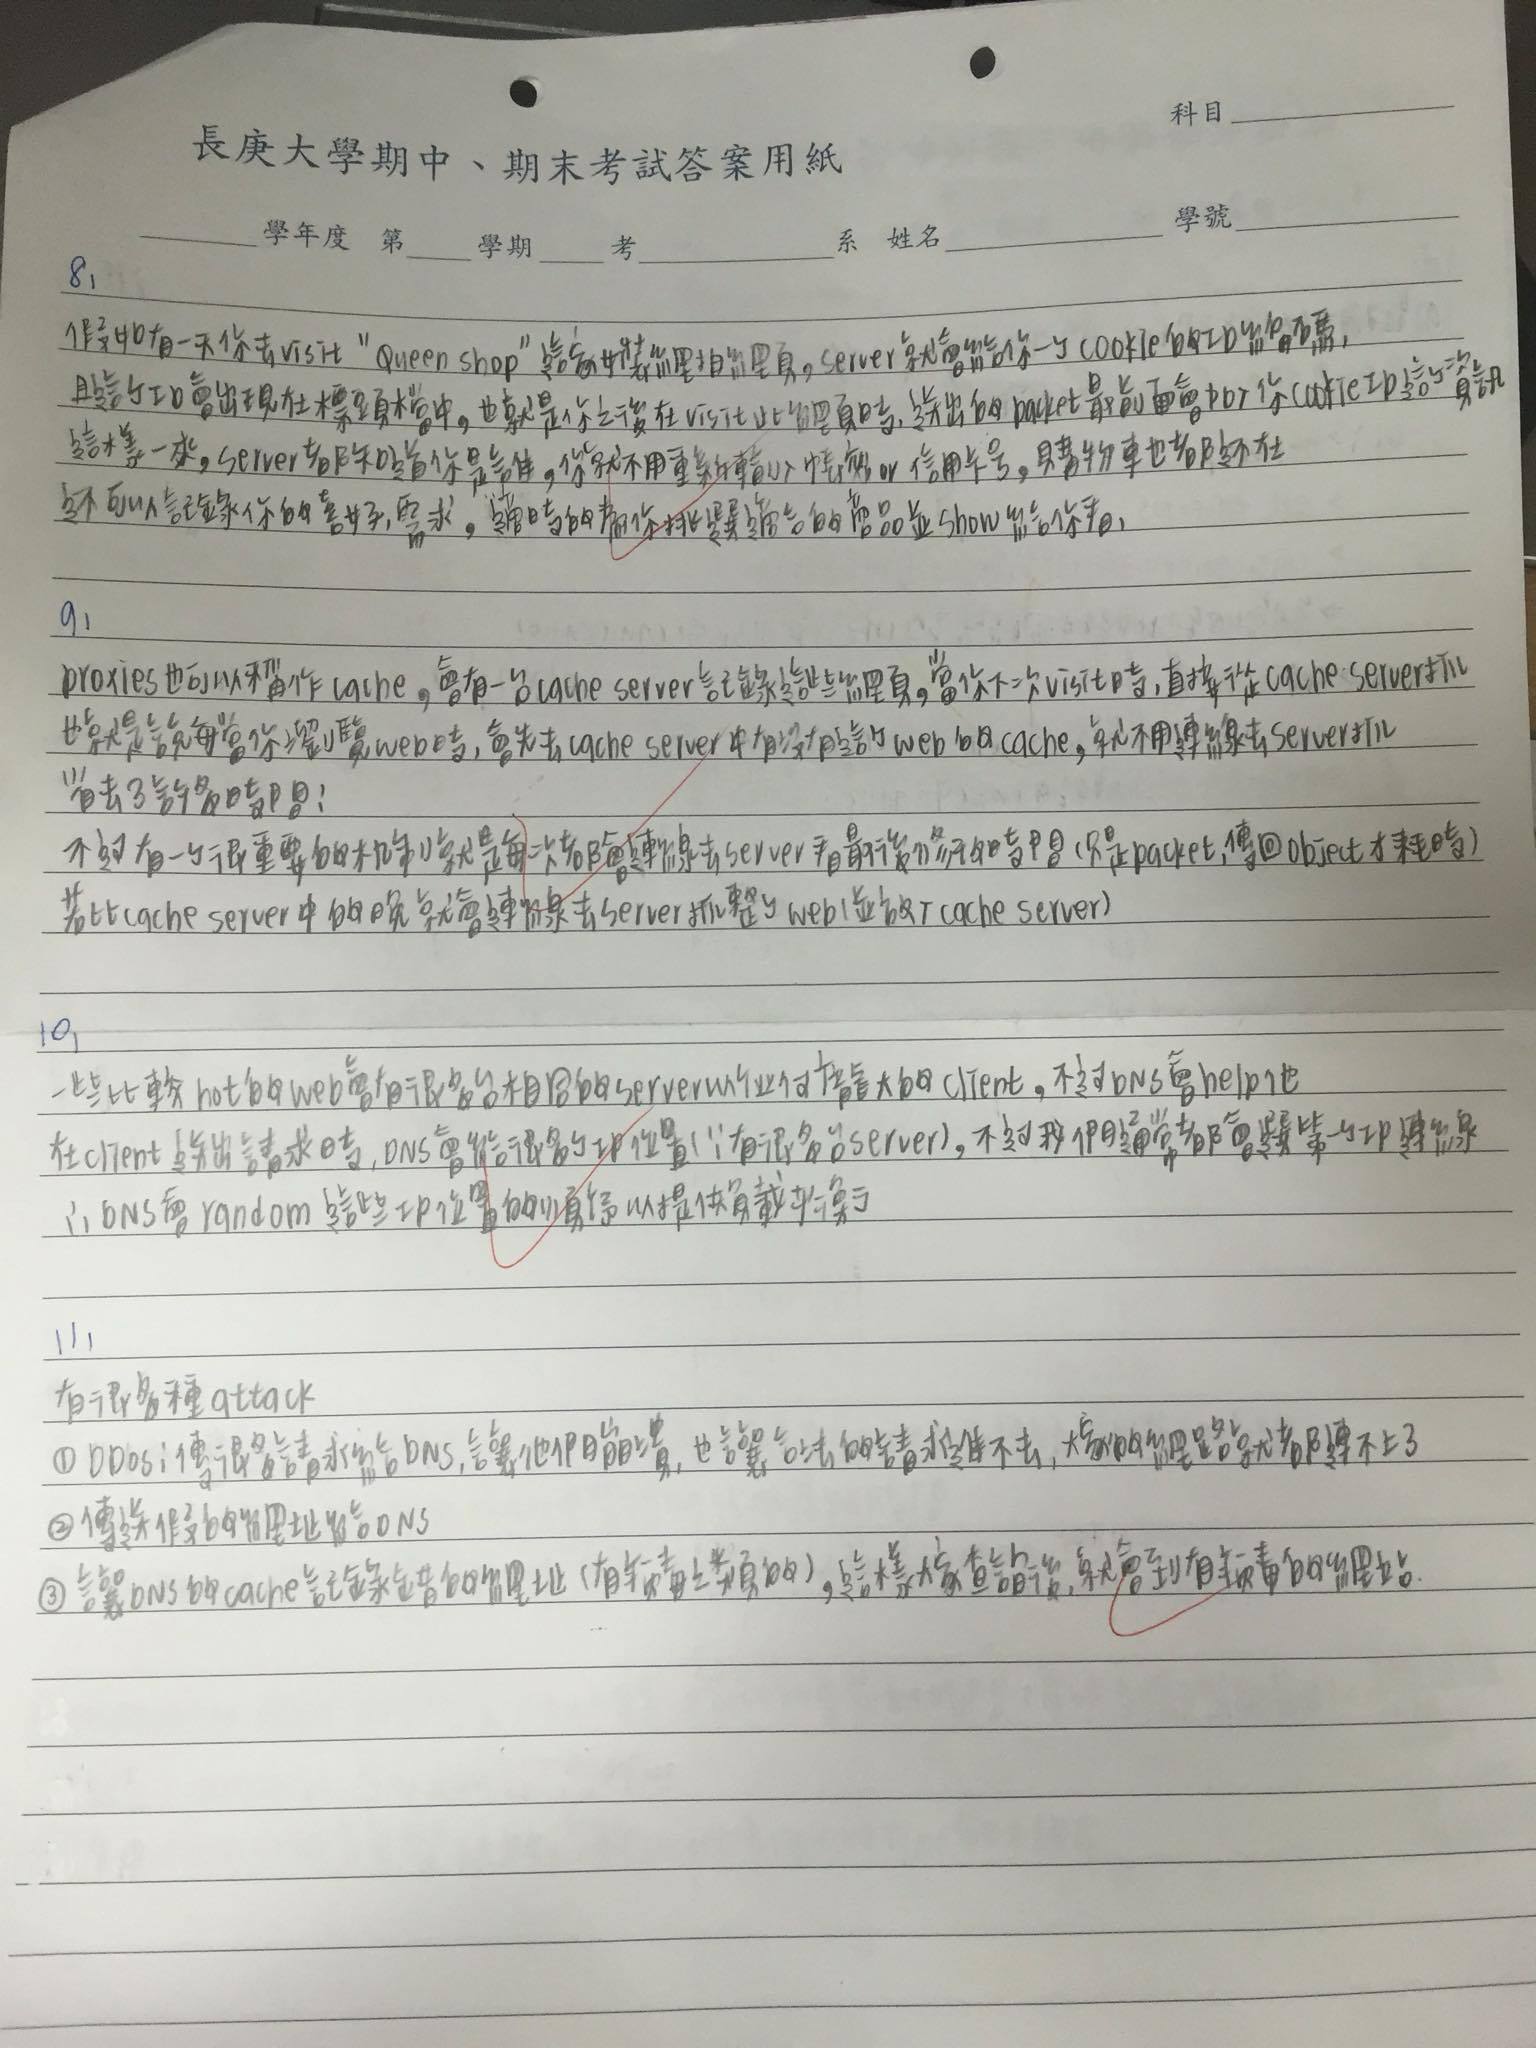 科目
長庚大學期中、期末考試答案用紙
學年度 第 學期 考 系 姓名 學號
8,
假如有一天你去visit "Queen shop" 這家女裝網拍網頁,server就會給你一個cookie的ID編號碼,
且這個ID會出現在標頭檔中。也就是你之後在visit此網頁時,送出的packet最前面會加下你cookie ID這個資訊
這樣一來,server都知道你是誰,你就不用重新輸入帳號or信用卡号,購物車也都還在
還可以記錄你的喜好,需求,適時的幫你挑選適合的商品並show給你看,
9,
proxies也可以稱作cache,會有一台cache server記錄這些網頁,當你下次visit時,直接從cache server抓
也就是說每當你瀏覽web時,會先去cache server中有沒有這個web的cache,就不用連線去server抓
省去了許多時間!
不過有一個很重要的机制就是每次都會連線去server看最後修改的時間(只是packet,傳回object才耗時)
若比cache server中的晚就會連線去server抓整個web(並放下cache server)
10,
一些比較hot的web會有很多台相同的server以應付龐大的client,不過DNS會help他
在client送出請求時,DNS會給很多個IP位置(∵有很多台server),不過我們通常都會選第一個IP連線
∴DNS會random這些IP位置的順序以提供負載平衡
11,
有很多種attack
① DDos:傳很多請求給DNS,讓他們崩潰,也讓合法的請求進不去,大家的網路就都連不上了
② 傳送假的網址給DNS
③ 讓DNS的cache記錄錯的網址(有病毒之類的),這樣大家查詢後,就會到有病毒的網站.